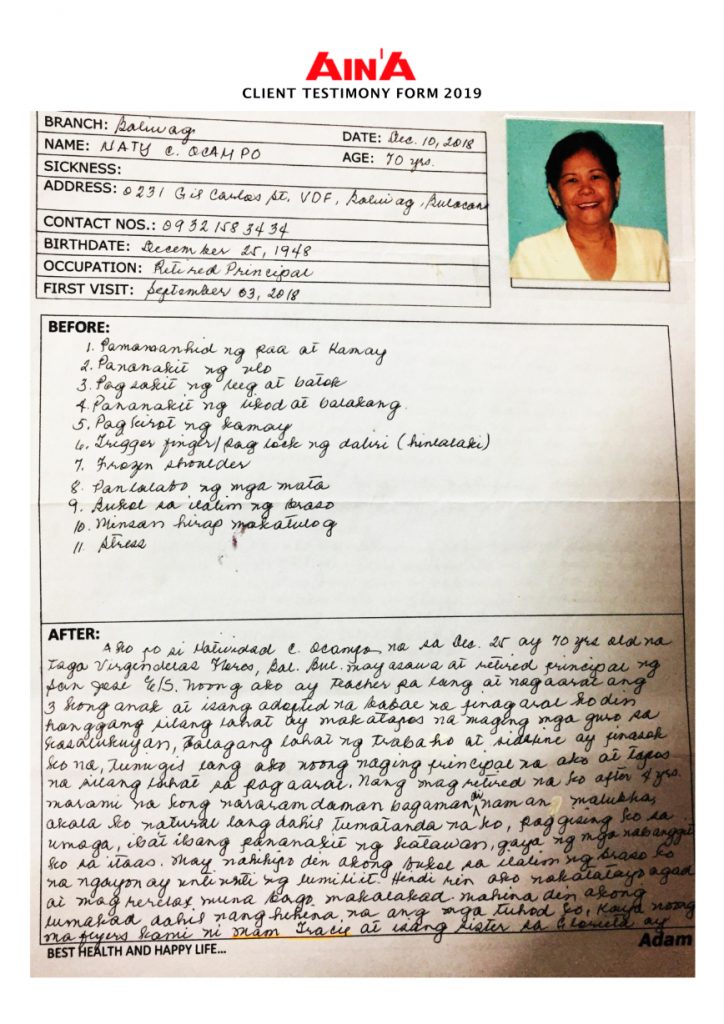 AIN'A
CLIENT TESTIMONY FORM 2019
BRANCH: Baliwag
DATE: Dec. 10, 2018
NAME: NATY C. OCAMPO
AGE: 70 yrs.
SICKNESS:
ADDRESS: 0231 Gil Carlos St. VDF, Baliwag, Bulacan
CONTACT NOS.: 0932 158 3434
BIRTHDATE: December 25, 1948
OCCUPATION: Retired Principal
FIRST VISIT: September 03, 2018
BEFORE:
1. Pamamanhid ng paa at Kamay
2. Pananakit ng ulo
3. Pag sakit ng leeg at batok
4. Pananakit ng likod at balakang
5. Pagkirot ng kamay
6. Trigger finger/pag lock ng daliri (hinlalaki)
7. Frozen shoulder
8. Panlalabo ng mga mata
9. Bukol sa ilalim ng braso
10. Minsan hirap makatulog
11. Stress
AFTER:
Ako po si Natividad C. Ocampo na sa Dec. 25 ay 70 yrs old na
taga Virgendelas Flores, Bal. Bul. may asawa at retired principal ng
San Jose E/S. Noong ako ay teacher pa lang at nagaaral ang
3 kong anak at isang adopted na babae na pinagaral ko din
hanggang silang lahat ay makatapos na maging mga guro sa
kasalukuyan, talagang lahat ng trabaho at sideline ay pinasok
ko na, tumigil lang ako noong naging principal na ako at tapos
na silang lahat sa pag aaral. Nang mag retired na ko after 4 yrs.
marami na kong nararamdaman bagaman di naman malubha,
akala ko natural lang dahil tumatanda na ko, paggising ko sa
umaga, ibat ibang pananakit ng katawan, gaya ng mga nabanggit
ko sa itaas. May nakikipo din akong bukol sa ilalim ng braso ko
na ngayon ay unti unti ng lumiliit. Hendi rin ako nakatatayo agad
at mag rerelax muna bago makalakad mahina din akong
lumakad dahil nang hihina na ang mga tuhod ko, kaya noong
ma flyers kami ni Mam Tracie at isang sister sa Glorieta ay
Adam
BEST HEALTH AND HAPPY LIFE...